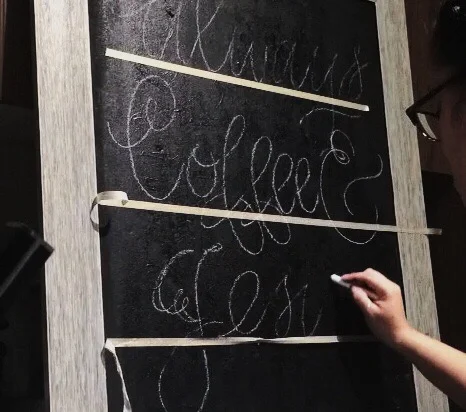 Always
Coffee &
Jesu